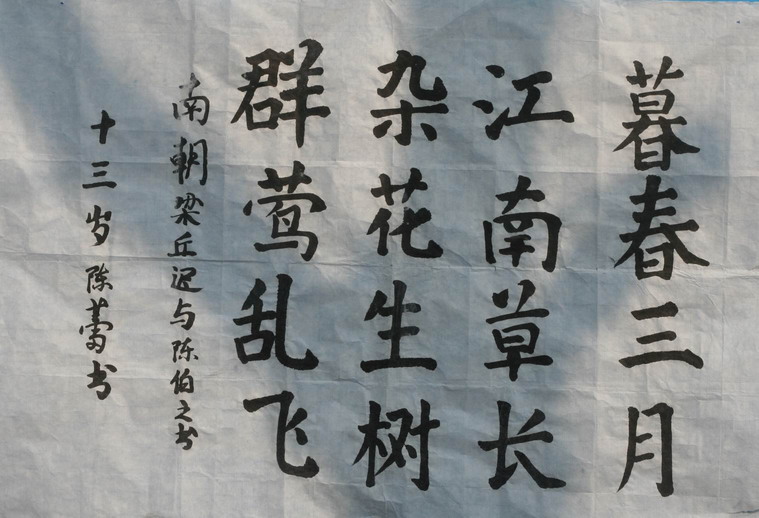 暮春三月
江南草长
杂花生树
群莺乱飞
南朝梁丘迟与陈伯之书
十三岁陈蕾书